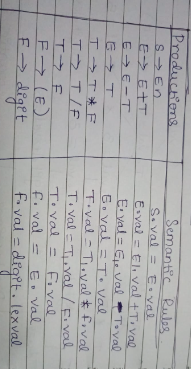 Productions Semantic Rules
S → En S.val = E.val
E → E+T E.val = E1.val + T.val
E → E-T E.val = E1.val - T.val
E → T E.val = T.val
T → T*F T.val = T1.val * F.val
T → T/F T.val = T1.val / F.val
T → F T.val = F.val
F → (E) F.val = E.val
F → digit F.val = digit.lexval